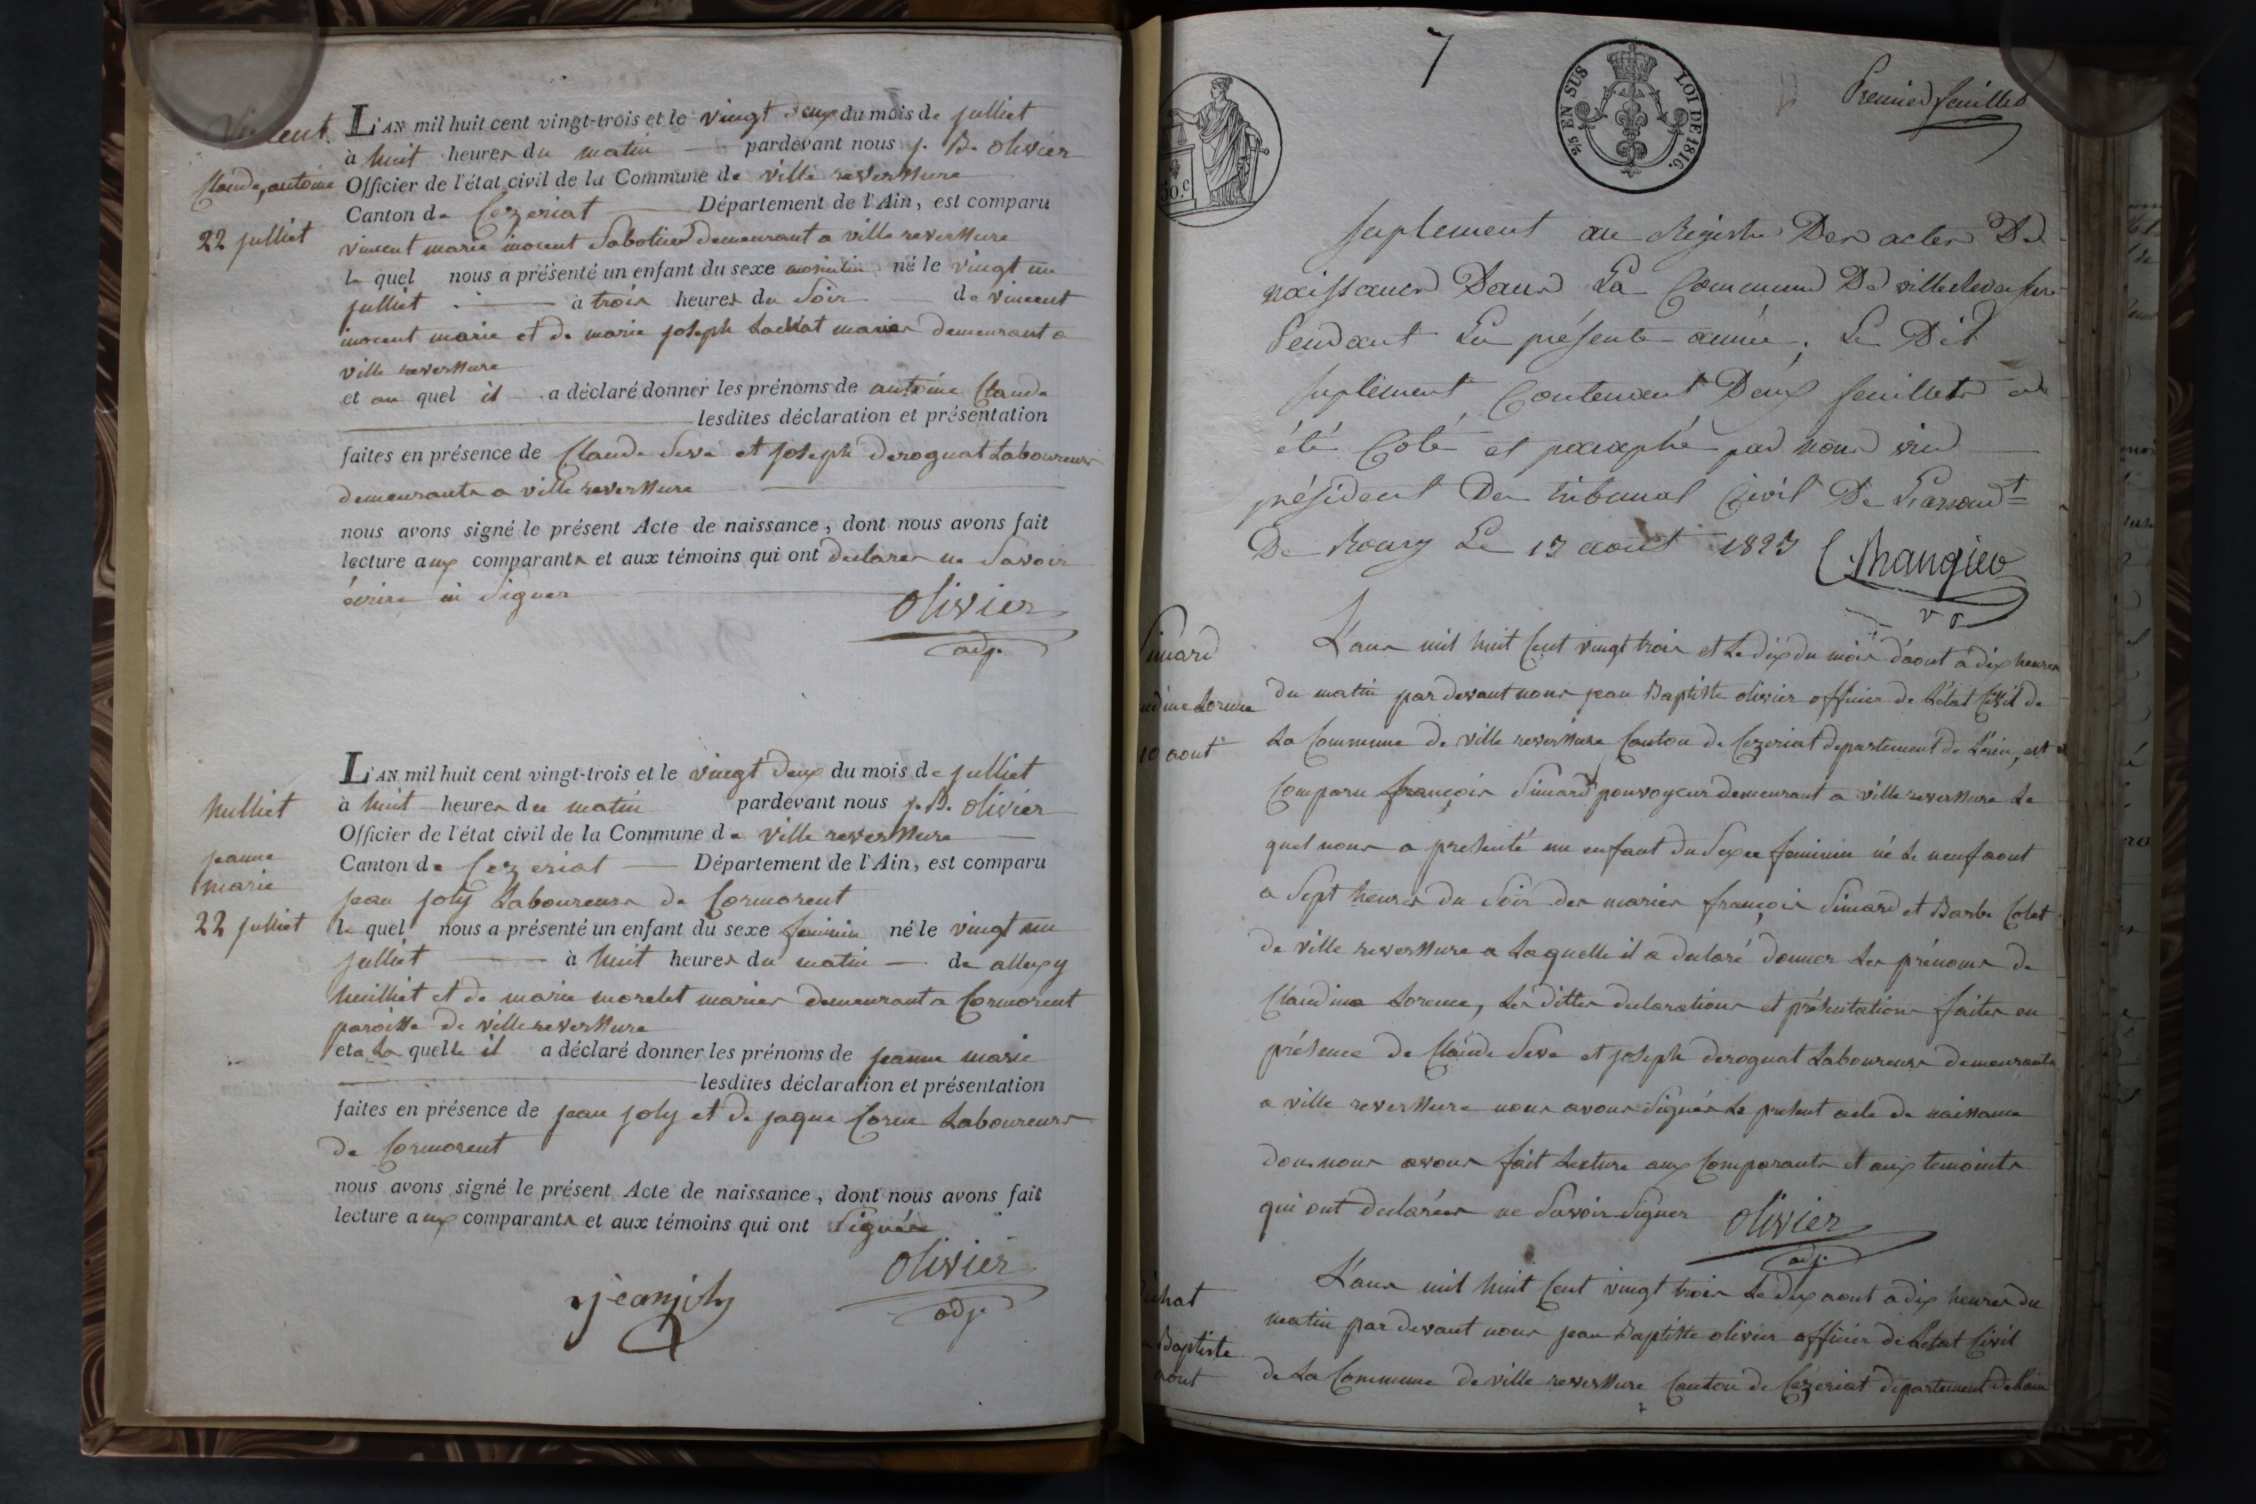 Vincent
Claude, antoine
22 julliet
L'AN mil huit cent vingt-trois et le vingt deux du mois de julliet
à huit heures du matin pardevant nous j. B. olivier
Officier de l'état civil de la Commune de ville reverssure
Canton de Cezeriat Département de l'Ain, est comparu
vincent marie inocent Sabotier demeurant a ville reverssure
le quel nous a présenté un enfant du sexe masculin né le vingt un
julliet à trois heures du Soir de vincent
inocent marie et de marie joseph mariés demeurant a
ville reverssure
et au quel il a déclaré donner les prénoms de antoine Claude
lesdites déclaration et présentation
faites en présence de Claude Seve et joseph deroguat Laboureurs
demeurants a ville reverssure
nous avons signé le présent Acte de naissance, dont nous avons fait
lecture aux comparants et aux témoins qui ont declarer ne Savoir
écrire ni Signer
olivier
adj.
hulliet
jeanne
marie
22 julliet
L'AN mil huit cent vingt-trois et le vingt deux du mois de julliet
à huit heures du matin pardevant nous j. B. olivier
Officier de l'état civil de la Commune de ville reverssure
Canton de Cezeriat Département de l'Ain, est comparu
jean joly Laboureurs de Cormorent
le quel nous a présenté un enfant du sexe feminin né le vingt un
julliet à huit heures du matin de allexy
huilliet et de marie morelet mariés demeurant a Cormorent
paroisse de ville reverssure
et a La quelle il a déclaré donner les prénoms de jeanne marie
lesdites déclaration et présentation
faites en présence de jean joly et de jaque Laboureurs
de Cormorent
nous avons signé le présent Acte de naissance, dont nous avons fait
lecture aux comparants et aux témoins qui ont Signés
olivier
adj.
jean joly
7
5/2 EN SUS LOI DE 1816.
50.c
Premier feuillet
suplement au Registre Des actes De
naissances Dans La Commune De villereversure
Pendant La présente année, Le Dit
suplément Contenant Deux feuillets a
été Coté et paraphé par nous vice
président Du tribunal Civil De L'arrond.t
De Bourg Le 13 aout 1823
v p
Simard
Claudine Lorence
10 aout
L'ans mil huit Cent vingt trois et Le dix du mois d'aout a dix heures
du matin par devant nous jean Baptiste olivier officier de L'état Civil de
La Commune de ville reverssure Canton de Cezeriat departement de L'ain, est
Comparu françois Simard demeurant a ville reverssure Le
quel nous a présenté un enfant du Sexe feminin né Le neuf aout
a Sept heures du Soir des mariés françois Simard et Barbe Colet
de ville reverssure a Laquelle il a declaré donner Les prénoms de
Claudine Lorence, Les dittes declarations et présentations faites en
présence de Claude Seve et joseph deroguat Laboureurs demeurants
a ville reverssure nous avons Signés Le présent acte de naissance
dont nous avons fait Lecture aux Comparants et aux temoints
qui ont declarées ne Savoir Signer olivier
adj.
Baptiste
aout
L'ans mil huit Cent vingt trois Le dix aout a dix heures du
matin par devant nous jean Baptiste olivier officier de L'état Civil
de La Commune de ville reverssure Canton de Cezeriat departement de L'ain